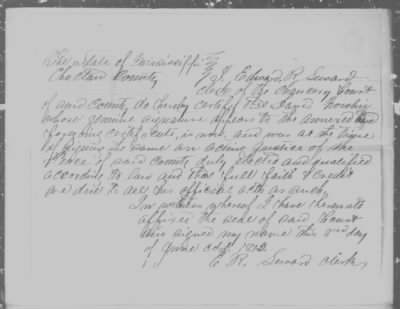 The State of Mississippi
Choctaw County I, Edward R. Seward
clerk of the Chancery Court
of said County do hereby certify that David
whose genuine signature appears to the annexed and
foregoing certificate, is now and was at the time
of signing the same an acting Justice of the
Peace of said County duly elected and qualified
according to law and that full faith & credit
are due to all his official acts as such.
In witness whereof I have hereunto
affixed the seal of said Court
and signed my name this day
of June
E. R. Seward clerk